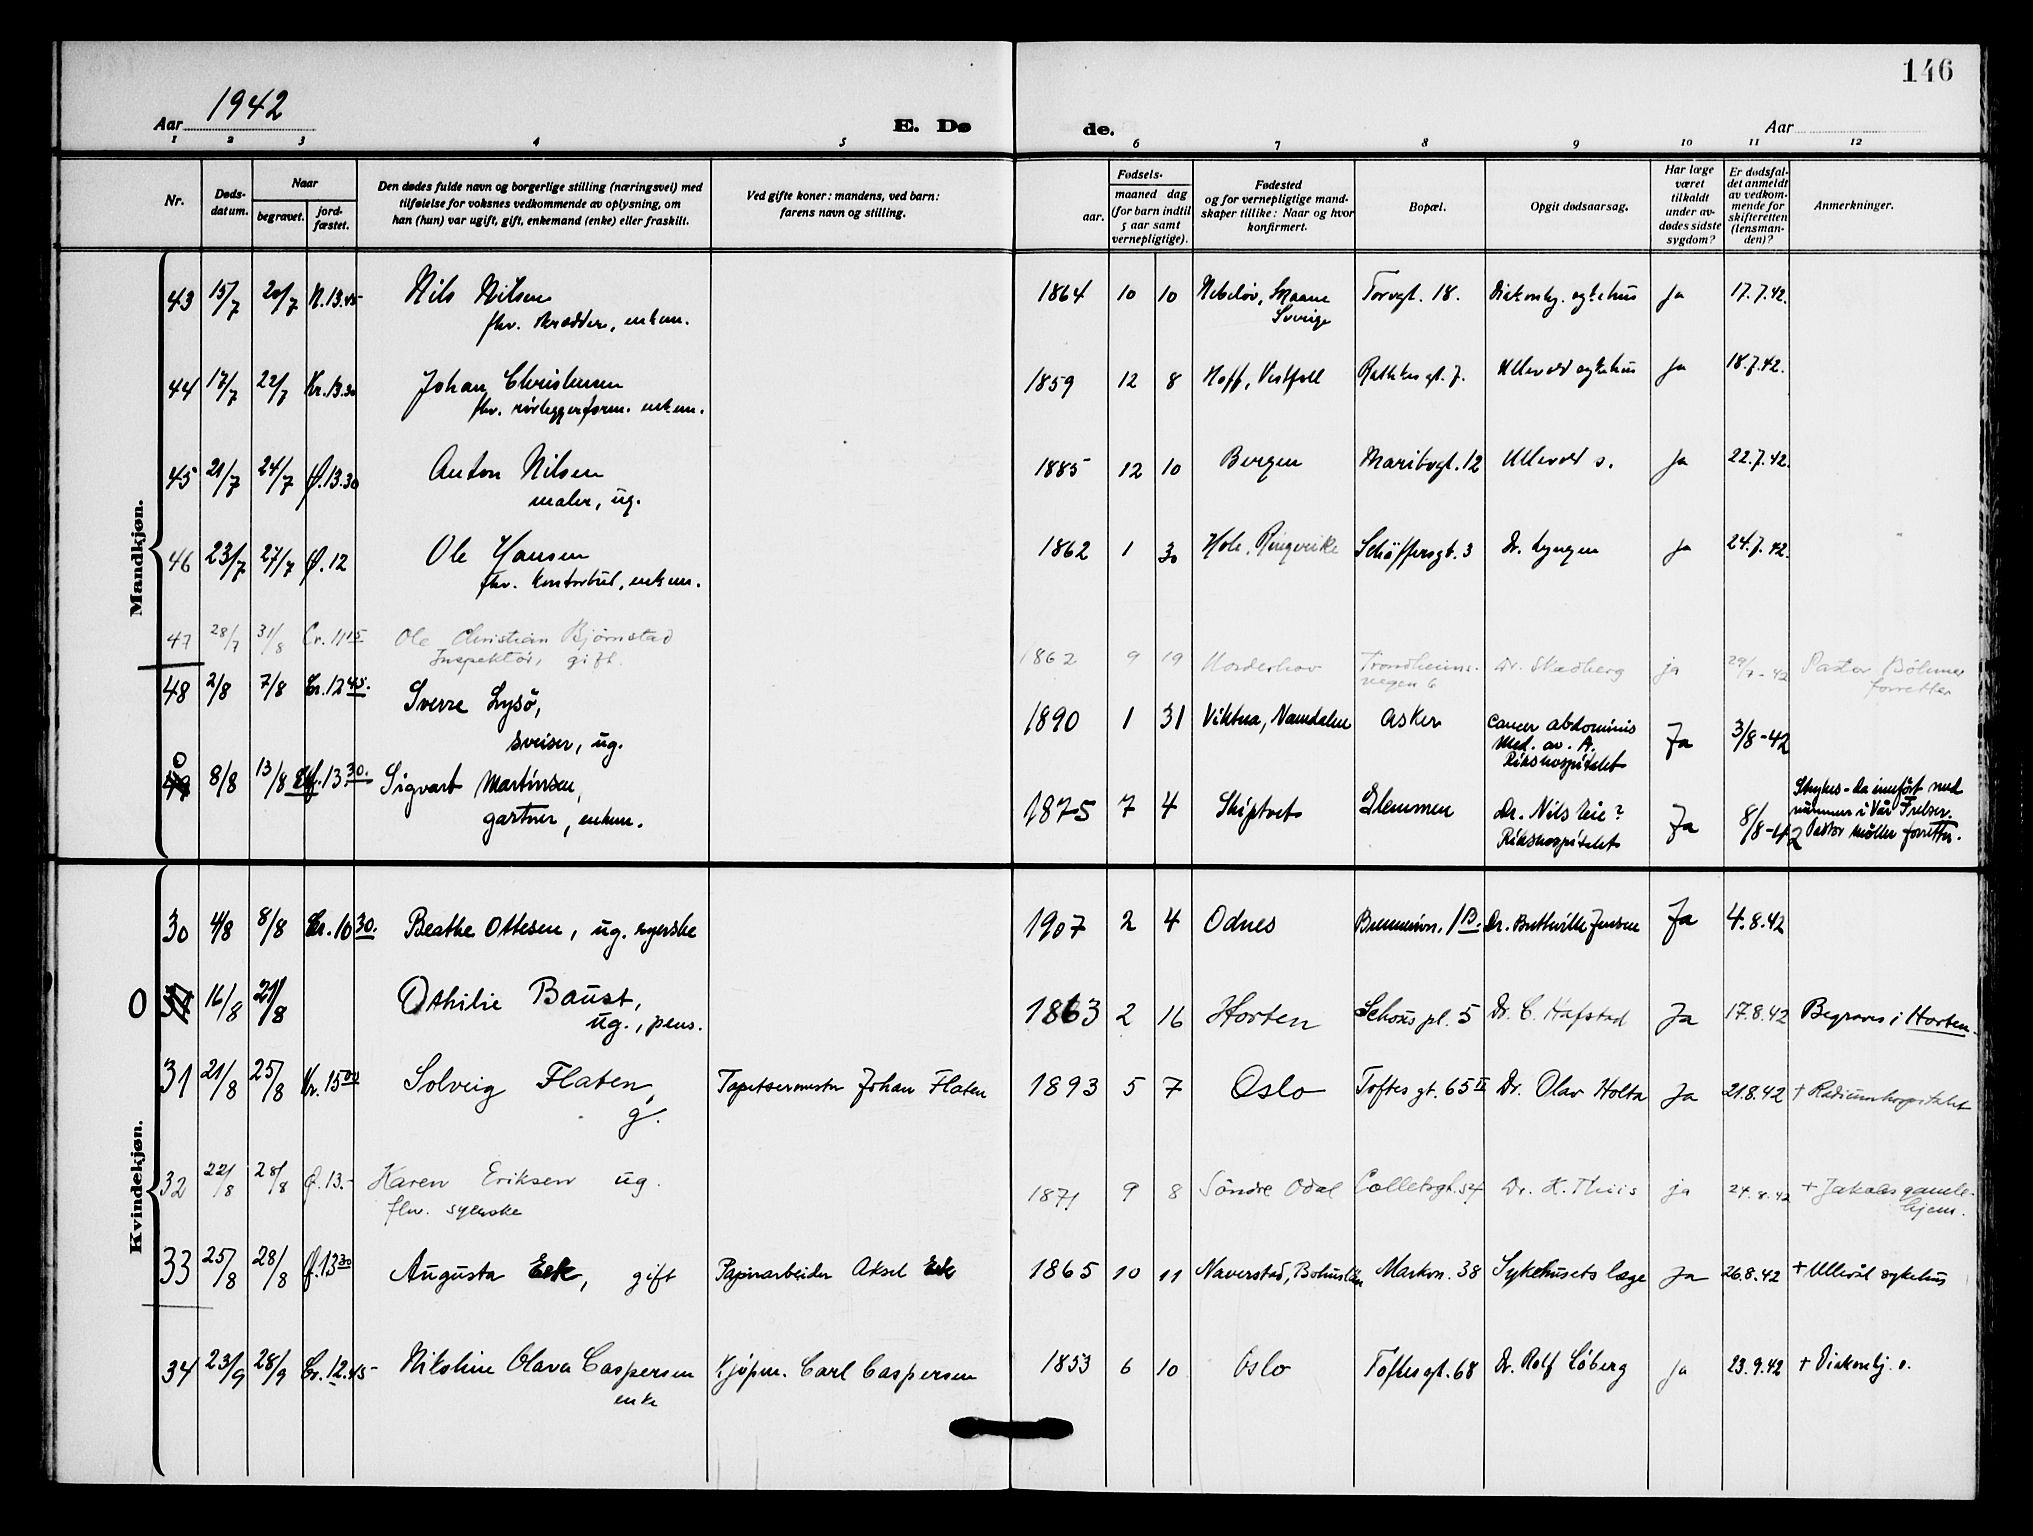 146
Aar 1942
E. Dø
de.
Aar
1 2 3 4 5 6 7 8 9 10 11 12
Nr.
Døds-
datum.
Naar
begravet.
jord-
fæstet.
Den dødes fulde navn og borgerlige stilling (næringsvei) med
tilføielse for voksnes vedkommende av oplysning, om
han (hun) var ugift, gift, enkemand (enke) eller fraskilt.
Ved gifte koner: mandens, ved barn:
farens navn og stilling.
Fødsels-
aar.
maaned dag
(for barn indtil
5 aar samt
vernepligtige).
Fødested
og for vernepligtige mand-
skaper tillike: Naar og hvor
konfirmert.
Bopæl.
Opgit dødsaarsag.
Har læge
været
tilkaldt
under av-
dødes sidste
sygdom?
Er dødsfal-
det anmeldt
av vedkom-
mende for
skifteretten
(lensman-
den)?
Anmerkninger.
Mandkjøn.
43 15/7 20/7 N.13.45 Nils Nilsen 1864 10 10 Skaane Torvgt. 18. Diakonhj. sykehus Ja 17.7.42.
fhv. skrædder, enkem. Sverige
44 17/7 22/7 Kr.13.30 Johan Christensen 1859 12 8 Hoff, Vestfoll Rathkes gt. 7. Ullevål sykehus Ja 18.7.42.
fhv. rørleggerform. enkem.
45 21/7 24/7 Ø.13.30 Anton Nilsen 1885 12 10 Bergen Maribogt. 12 Ullevål s. Ja 22.7.42.
maler, ug.
46 23/7 27/7 Ø.12 Ole Hansen 1862 1 30 Hole, Ringerike Schøffersgt. 3 Dr. Lyngen Ja 24.7.42.
fhv. kontorbud, enkem.
47 28/7 31/8 Cr. 11 15 Ole Christian Bjørnstad 1862 9 19 Norderhov Trondheims- Dr. Skedberg ja 29/7-42 Pastor Böhmer
Inspektør, gift. vegen 6 forretter
48 2/8 7/8 Cr. 12 45. Sverre Lysö, 1890 1 31 Vikna, Namdalen Asker Cancer abdominis Ja 3/8-42
sveiser, ug. Med. av. A.
Rikshospitalet
0
49 8/8 13/8 13.30. Sigvart Martinsen, 1875 7 4 Skiptvet Glemmen Dr. Nils Lie? Ja 8/8-42 Strykes - da innført med
gartner, enkem. Rikshospitalet nummer i Vår Frelser.
Pastor Møller forretter.
Kvindekjøn.
30 4/8 8/8 Cr. 10 30. Beathe Ottesen, ug. syerske 1907 2 4 Odnes 1 B. Dr. Jensen Ja 4.8.42
O 31 16/8 21/8 Othilie Baust, 1863 2 16 Horten Schous pl. 5 Dr. C. Hafstad Ja 17.8.42 Begraves i Horten.
ug., pens.
31 21/8 25/8 Kr. 15 00 Solveig Flaten, Tapetsermester Johan Flaten 1893 5 7 Oslo Toftes gt. 65 II Dr. Olav Holta Ja 21.8.42 + Radiumhospitalet
g.
32 22/8 28/8 Ø. 13.- Karen Eriksen ug. 1871 9 8 Söndre Odal Collettsgt. 54 Dr. K. Thiis ja 24.8.42 + Jakobs gamle-
fhv. syerske hjem.
33 25/8 28/8 Ø. 13 30 Augusta Eek, gift Papirarbeider Aksel Eek 1865 10 11 Naverstad, Bohuslän Markvn. 38 Sykehusets læge Ja 26.8.42 + Ullevål sykehus
34 23/9 28/9 Cr. 12.45 Nikoline Olava Caspersen Kjøpm. Carl Caspersen 1853 6 10 Oslo Toftesgt. 68 Dr. Rolf Löberg ja 23.9.42 + Diakonhj. s.
enke